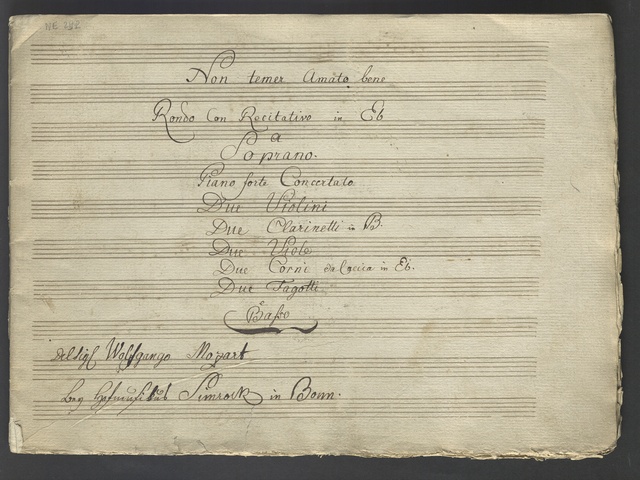 NE 282
Non temer Amato bene
Rondo Con Recitativo in Eb
a
Soprano.
Piano forte Concertato
Due Violini
Due Clarinetti in B.
Due Viole
Due Corni da Caccia in Eb.
Due Fagotti
e
Baſso
del Sigl Wolfgango Mozart
bey Hofmusikus Simrock in Bonn.